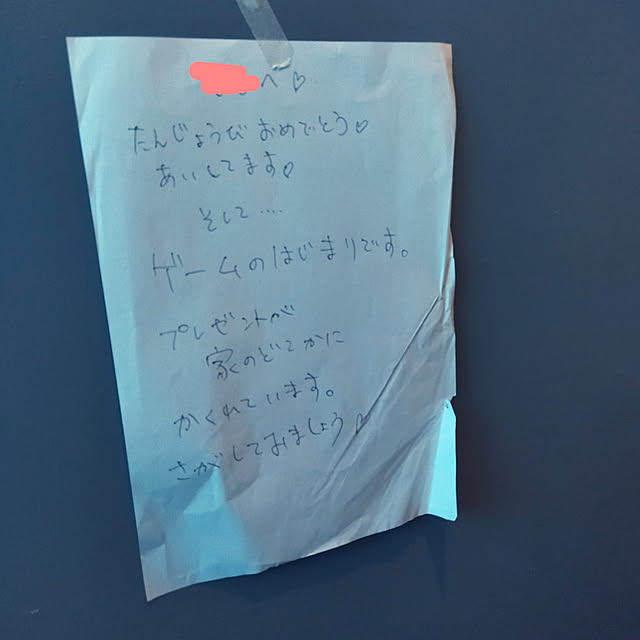 へ♡
たんじょうびおめでとう♡
あいしてます♡
そして....
ゲームのはじまりです。
プレゼントが
家のどこかに
かくれています。
さがしてみましょう♡